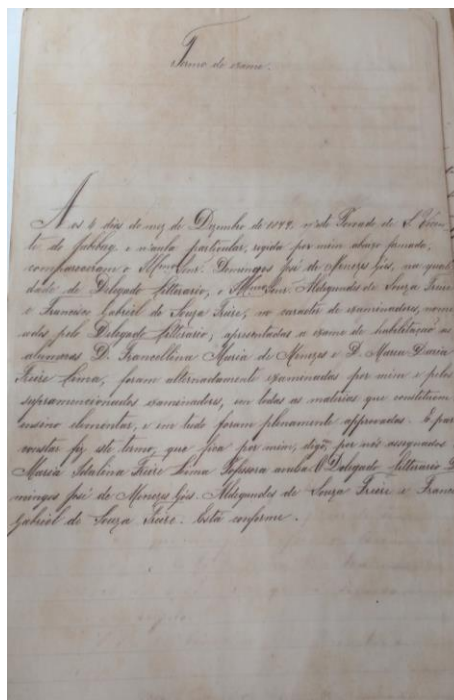 Termo de exame.
Aos 6 dias do mez de Dezembro de 1879. n'este Povoado de S. Vicen
te de , e n'aula particular, regida por mim abaixo firmado,
compareceram o Illmo Senr. Domingos José de Menezes Góis, na quali
dade de Delegado litterario, o Illmo Senr. Aldegundes de Souza Freire
e Francisco Gabriel de Souza Freire, no caracter de examinadores, nome
ados pelo Delegado litterario, apresentadas a exame de habilitação as
alumnas D. Francellina Maria de Menezes e D. Maria
Freire Lima, foram alternadamente examinadas por mim e pelos
supramencionados examinadores, em todas as materias que constituem
ensino elementar, e em tudo foram plenamente approvadas. E para
constar fiz este termo, que fica por mim, digo, por nós assignados
Maria Idalina Freire Lima O Delegado litterario Do
mingos José de Menezes Góis. Aldegundes de Souza Freire e Franc
Gabriel de Souza Freire. Está conforme.